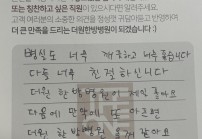 또는 칭찬하고 싶은 직원이 있으시다면 알려주세요.
고객 여러분의 소중한 의견을 정성껏 귀담아듣고 반영하여
더 큰 만족을 드리는 더원한방병원이 되겠습니다.
병실도 너무 깨끗하고 너무 좋습니다
다들 너무 친절하십니다
더원 한방병원이 제일 좋아요
다음에 만약에 또 아프면
더원 한방병원 올게 같아요